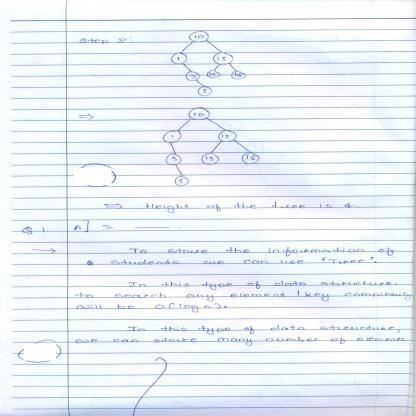 Step 5:
10
1 15
16
5
⇒
10
1 15
16
5
⇒ Height of the tree is 4.
Q.1. A]
→ To store the information of
students we can use "Tree".
In this type of data structure,
to search any element / key complexity
will be O(log n).
In this type of data structure,
we can store many number of elements